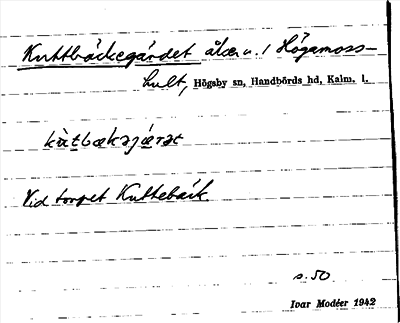 Kuttbäckegärdet åker u. / Högamoss-
hult, Högsby sn, Handbörds hd, Kalm. l.
kùtbækəjæ̣rət
Vid torpet Kuttebäck.
s. 50
Ivar Modéer 1942